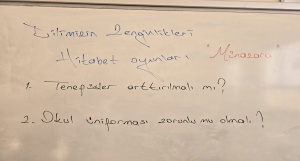 Dilimizin Zenginlikleri
Hitabet oyunları "Münazara"
1. Teneffüsler arttırılmalı mı?
2. Okul üniforması zorunlu mu olmalı?